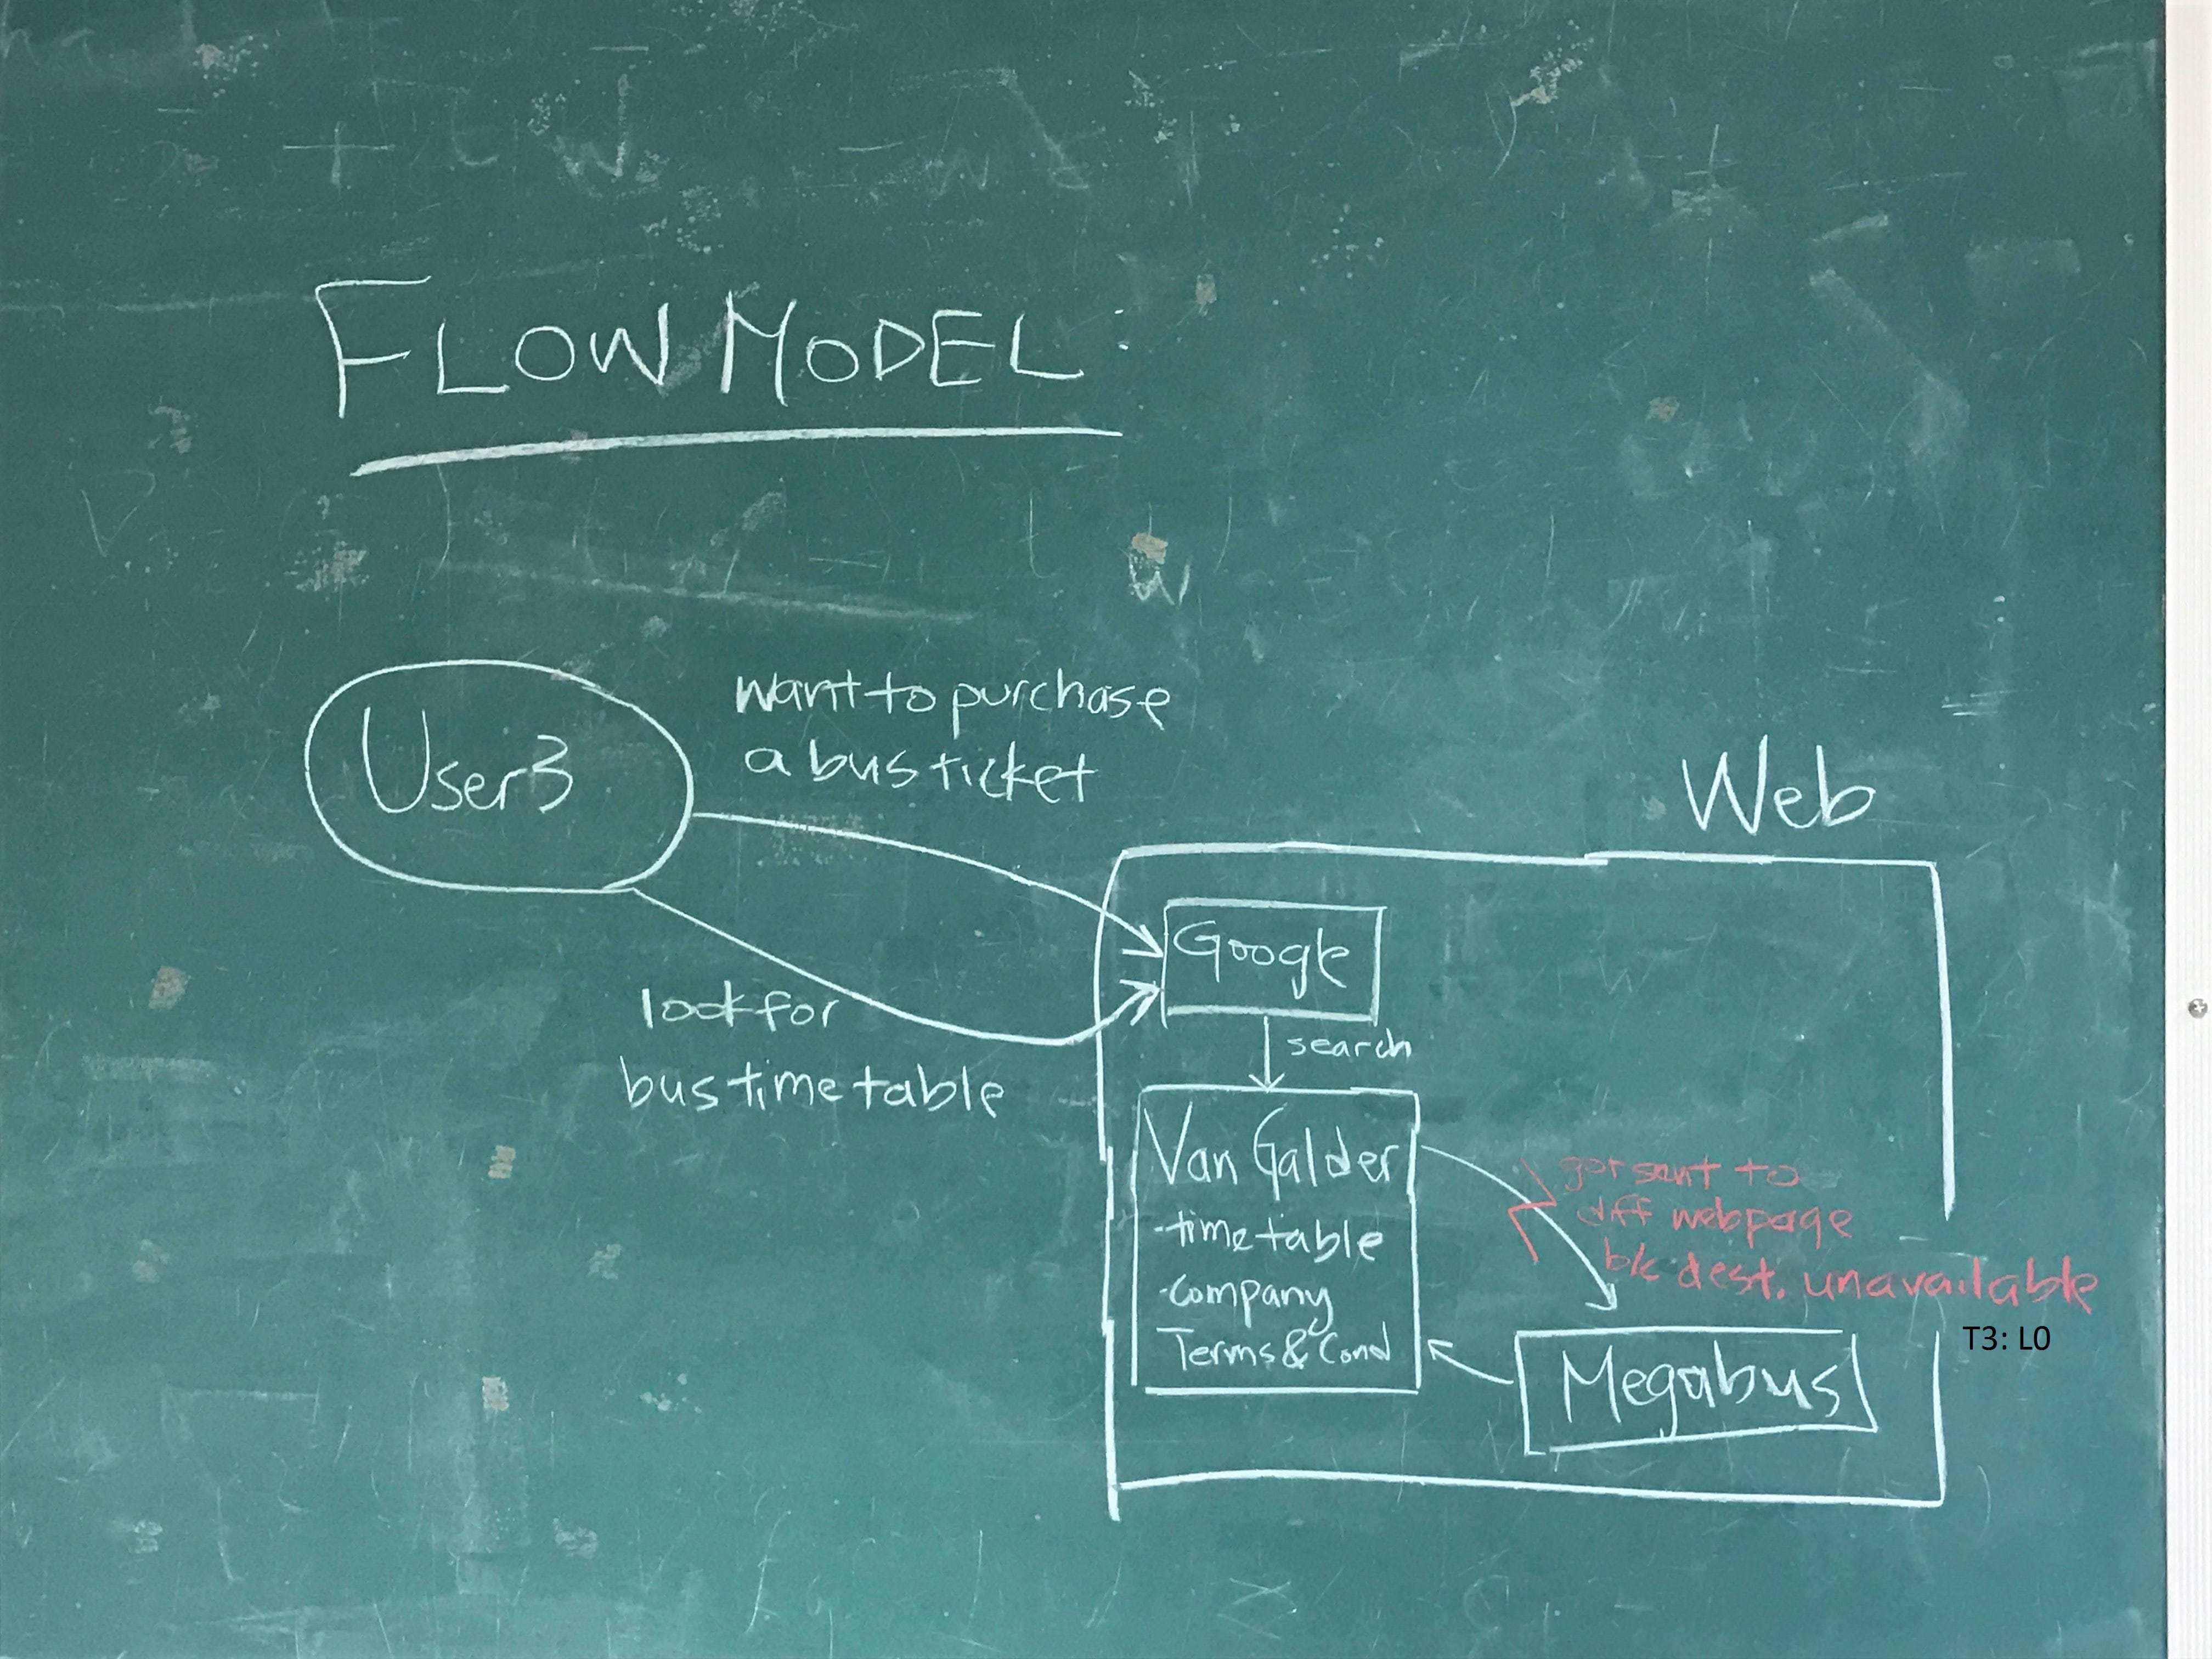 FLOW MODEL:
User3
want to purchase
a bus ticket
look for
bus timetable
Web
Google
search
Van Galder
-timetable
-Company
Terms & Cond
got sent to
diff webpage
b/c dest. unavailable
T3: L0
Megabus